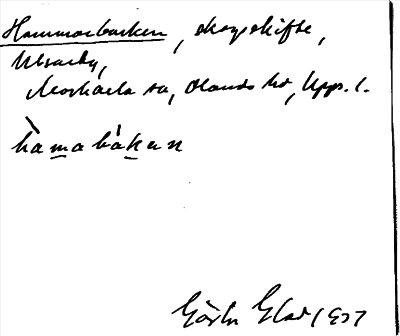 Hammarbacken, skogsskifte,
Ulvarby,
Morkarla sn, Olands hd, Upps. l.
hamabàkan
Gösta Glad 1937